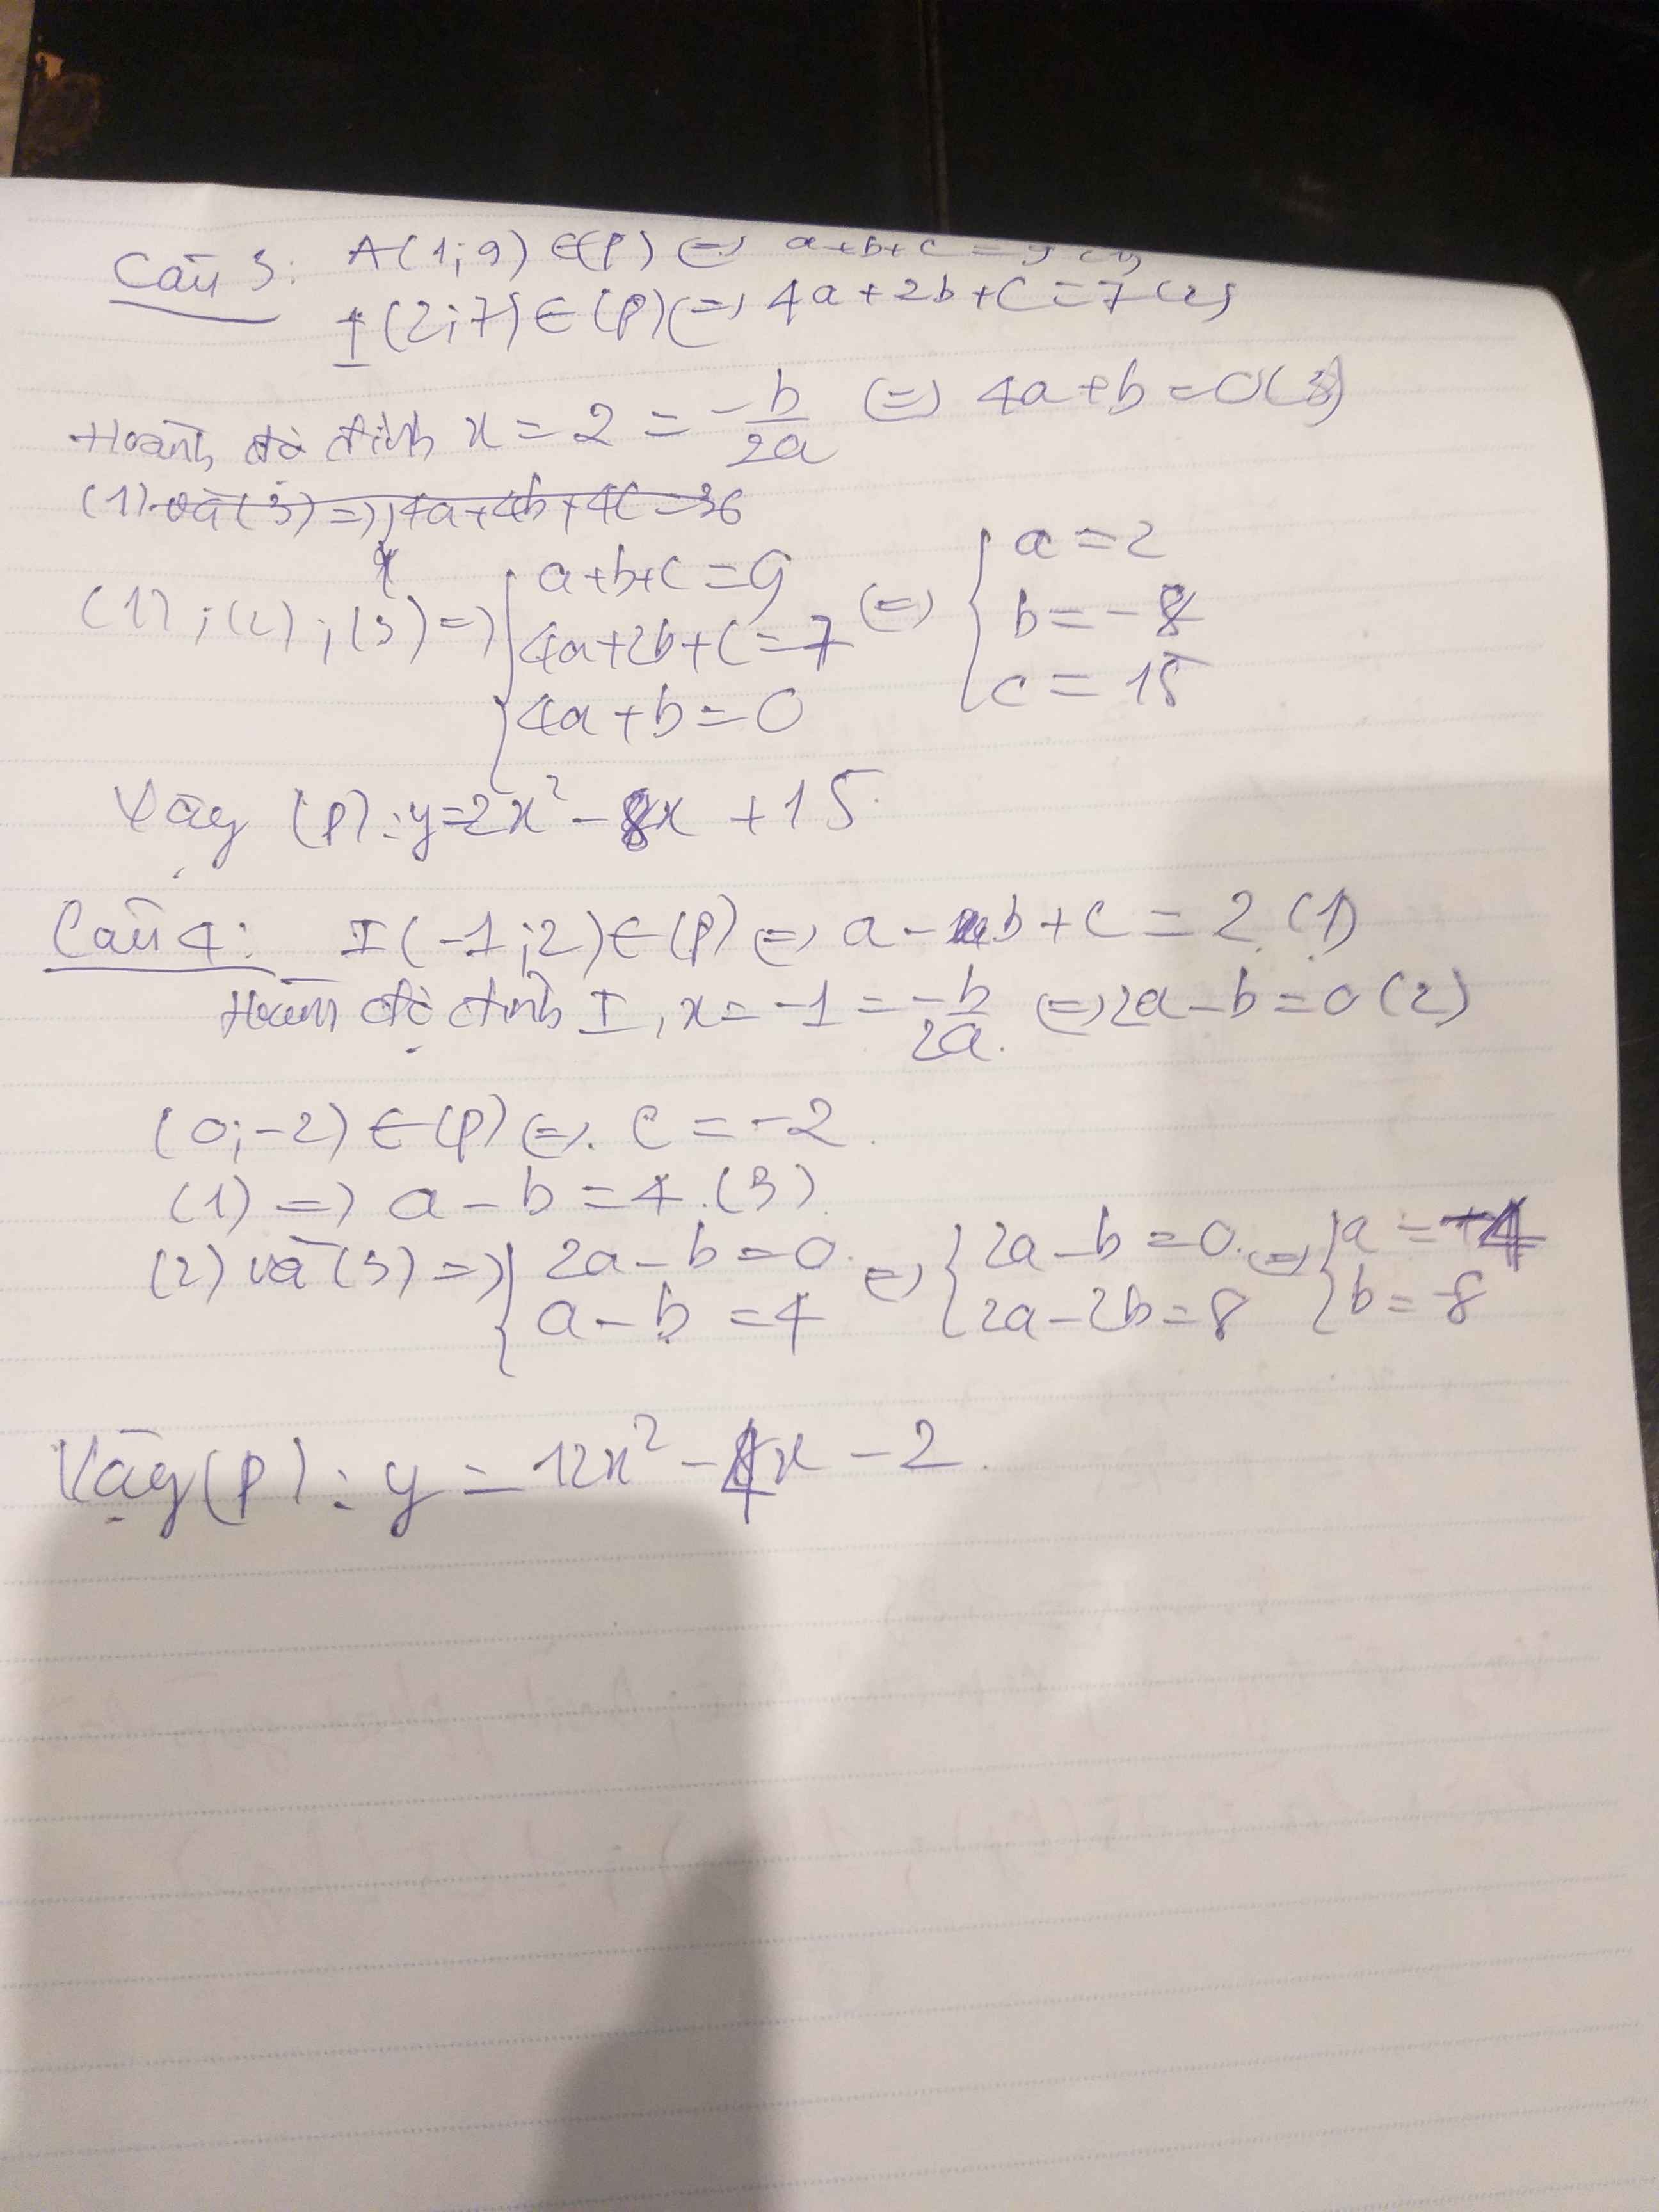 Câu 3: A(1;9) ∈ (P) (=) a+b+c = 9 (1)
I(2;7) ∈ (P) (=) 4a+2b+c=7 (2)
Hoành độ đỉnh x = 2 = -b/2a (=) 4a+b=0 (3)
(1) và (3) =) 4a+4b+4c=36
(1);(2);(3) =) { a+b+c=9 (=) { a=2
4a+2b+c=7 b=-8
4a+b=0 c=15
Vậy (P): y=2x²-8x+15.
Câu 4: I(-1;2) ∈ (P) (=) a-b+c=2 (1)
Hoành độ đỉnh I, x=-1=-b/2a. (=) 2a-b=0 (2)
(0;-2) ∈ (P) (=). c=-2.
(1) =) a-b=4.(3)
(2) và (3) =) { 2a-b=0. (=) { 2a-b=0. (=) { a=
a-b=4 2a-2b=8 b=-8
Vậy (P): y = 12x² - x - 2.